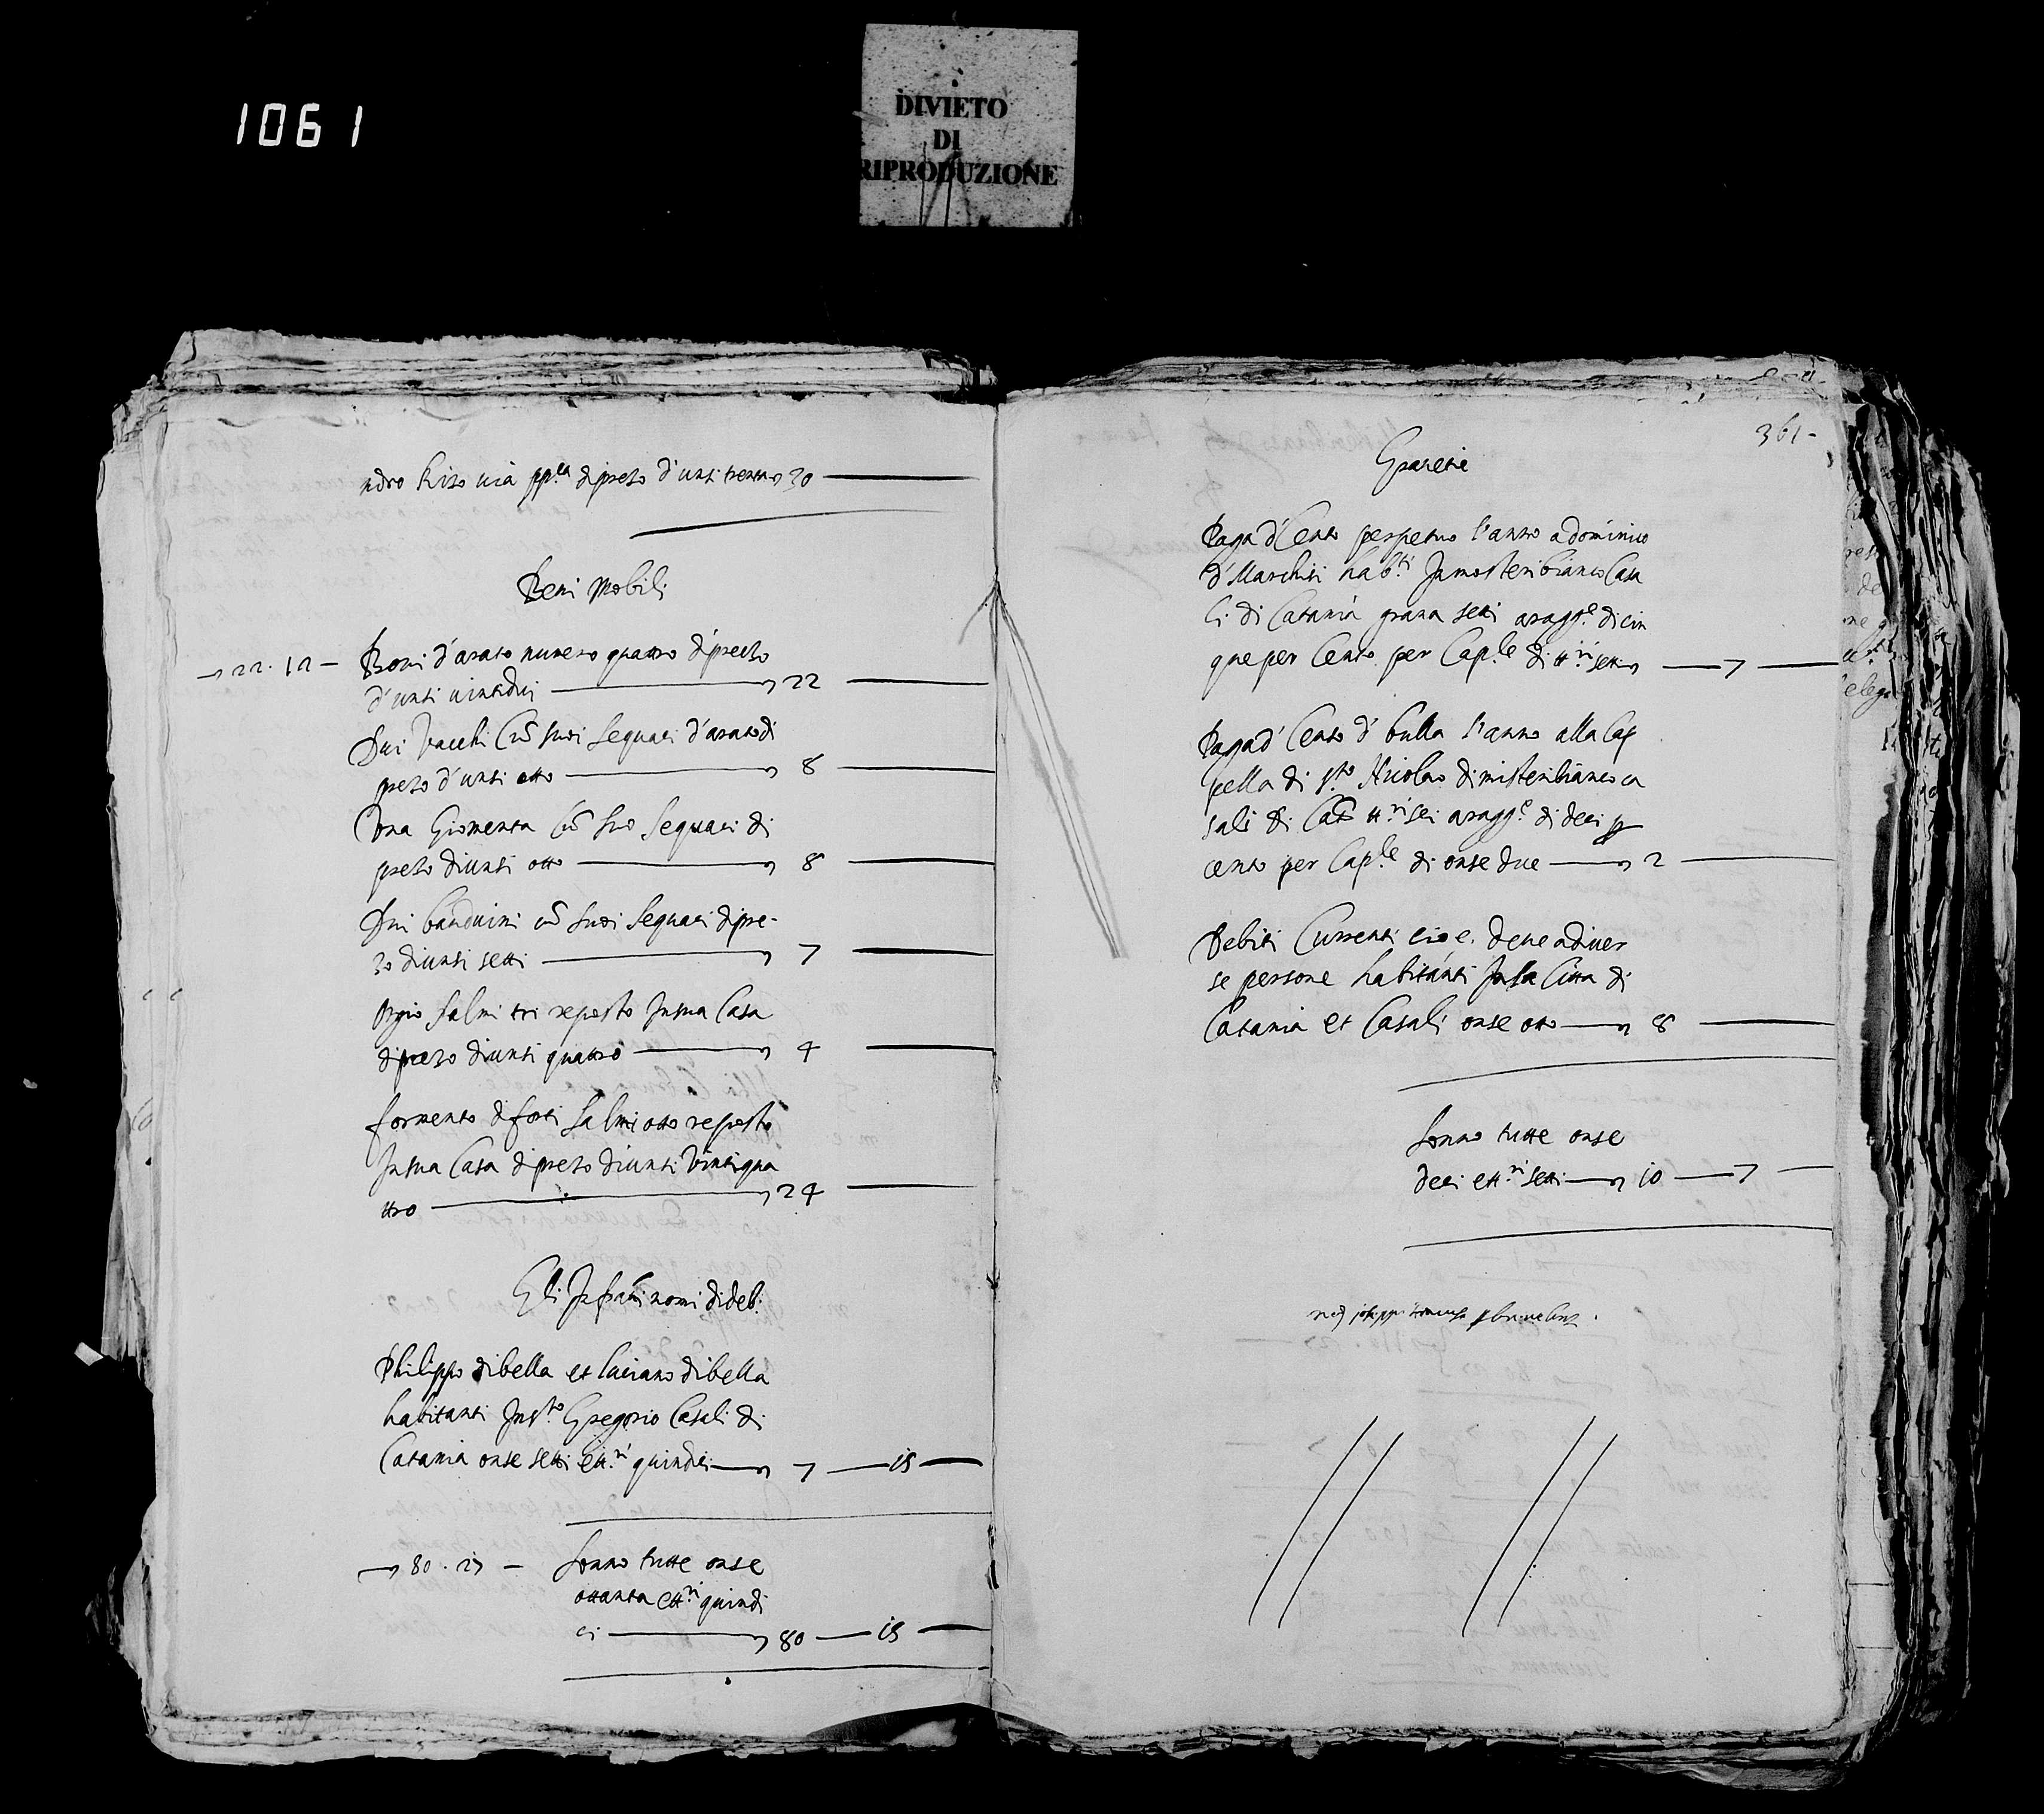 1061
DIVIETO
DI
RIPRODUZIONE
ndro Rizo via pp.ca di prezo d'unzi trenta 30
Beni Mobili
22. 12 - Bovi d'arato numero quattro di prezzo
d'unzi vintidui 22
Dui Vacchi Cũ suoi sequaci d'arato di
prezo d'unzi otto 8
Una Giomenta Cũ suo sequaci di
prezo di unzi otto 8
Dui bauduini cũ suoi sequaci di pre-
zo di unzi setti 7
Orgio salmi tri reposto In sua Casa
di prezo di unzi quattro 4
formento di forti salmi otto reposto
In sua Casa di prezo di unzi Vintiqua
ttro 24
Gli Infratti nomi di deb.
Philippo di bella et luciano di bella
habitanti In s.to Gregorio Casali di
Catania onze setti e tt.ri quindici 7 - 15
80. 27 - Sonno tutte onze
ottanta e tt.ri quindi
ci 80 - 15
361-
Gravezie
Paga d' Cenzo perpetuo l'anno a dominico
d' Marchisi hab.ti In mosteri bianco Casa
li di Catania grana setti a ragg.e di cin
que per Cento per Cap.le di tt.ri setti 7
Paga d' Cenzo d' bulla l'anno alla Cap
pella di s.to Nicolao di misteribianco ca
sali di Cat.a tt.ri sei a ragg.e di deci p
cento per Cap.le di onze due 2
Debiti Currenti cioe. deve a diver
se persone habitanti In la Citta di
Catania et Casali onze otto 8
Sonno tutte onze
deci e tt.ri setti 10 - 7